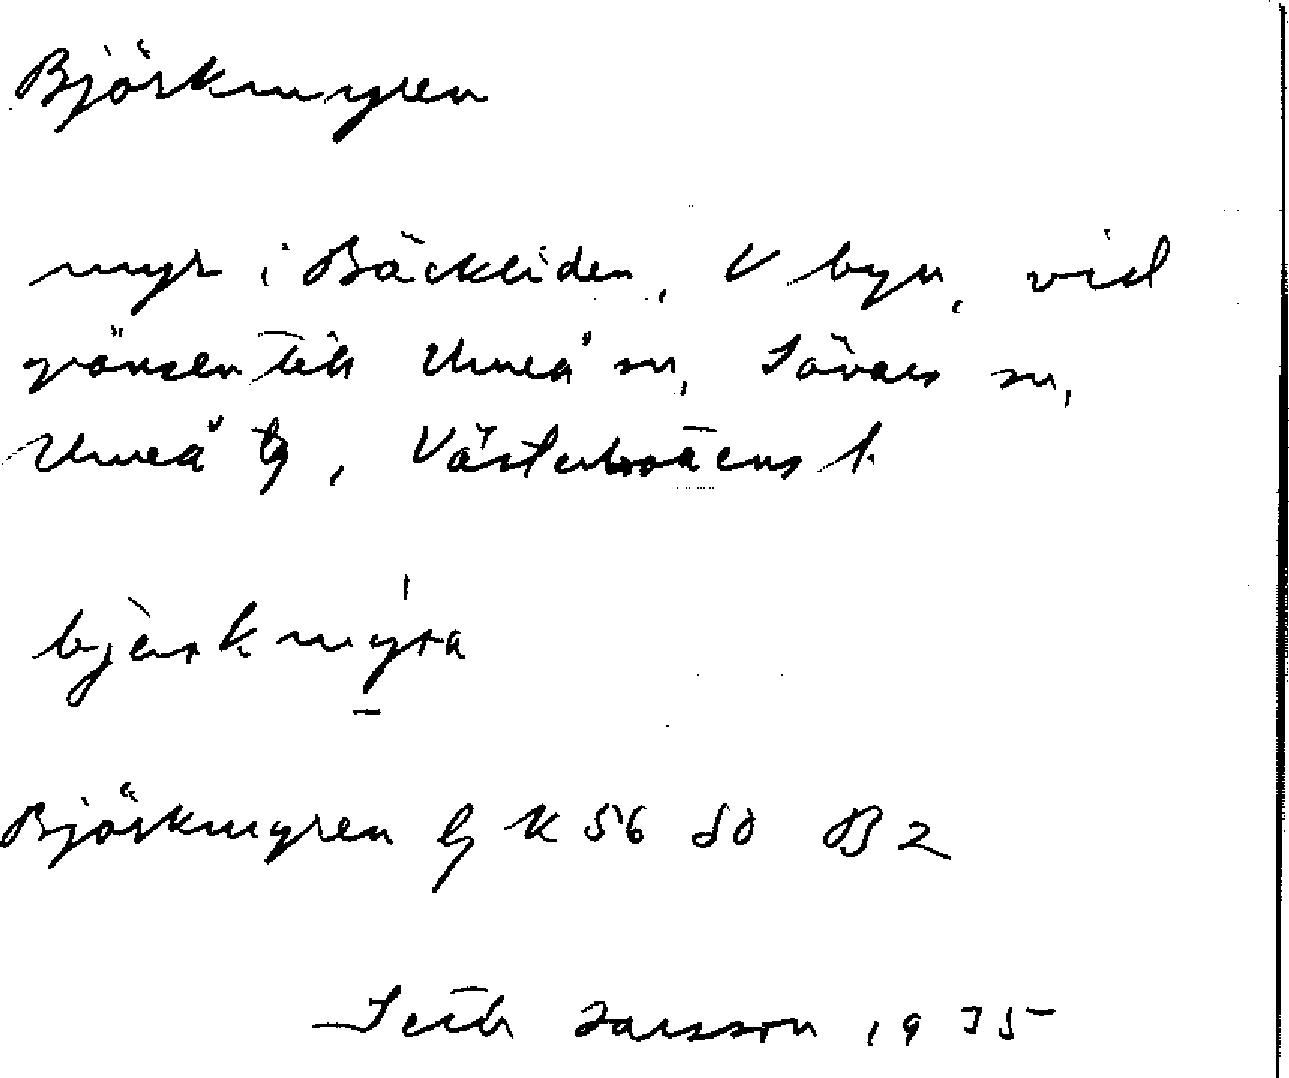 Björkmyren
myr i Bäckliden, V byn, vid
gränsen till Umeå sn, Sävars sn,
Umeå tg, Västerbottens l.
bjèrkmýra
Björkmyren Ek 56 80 B 2
Seth Jansson 1975